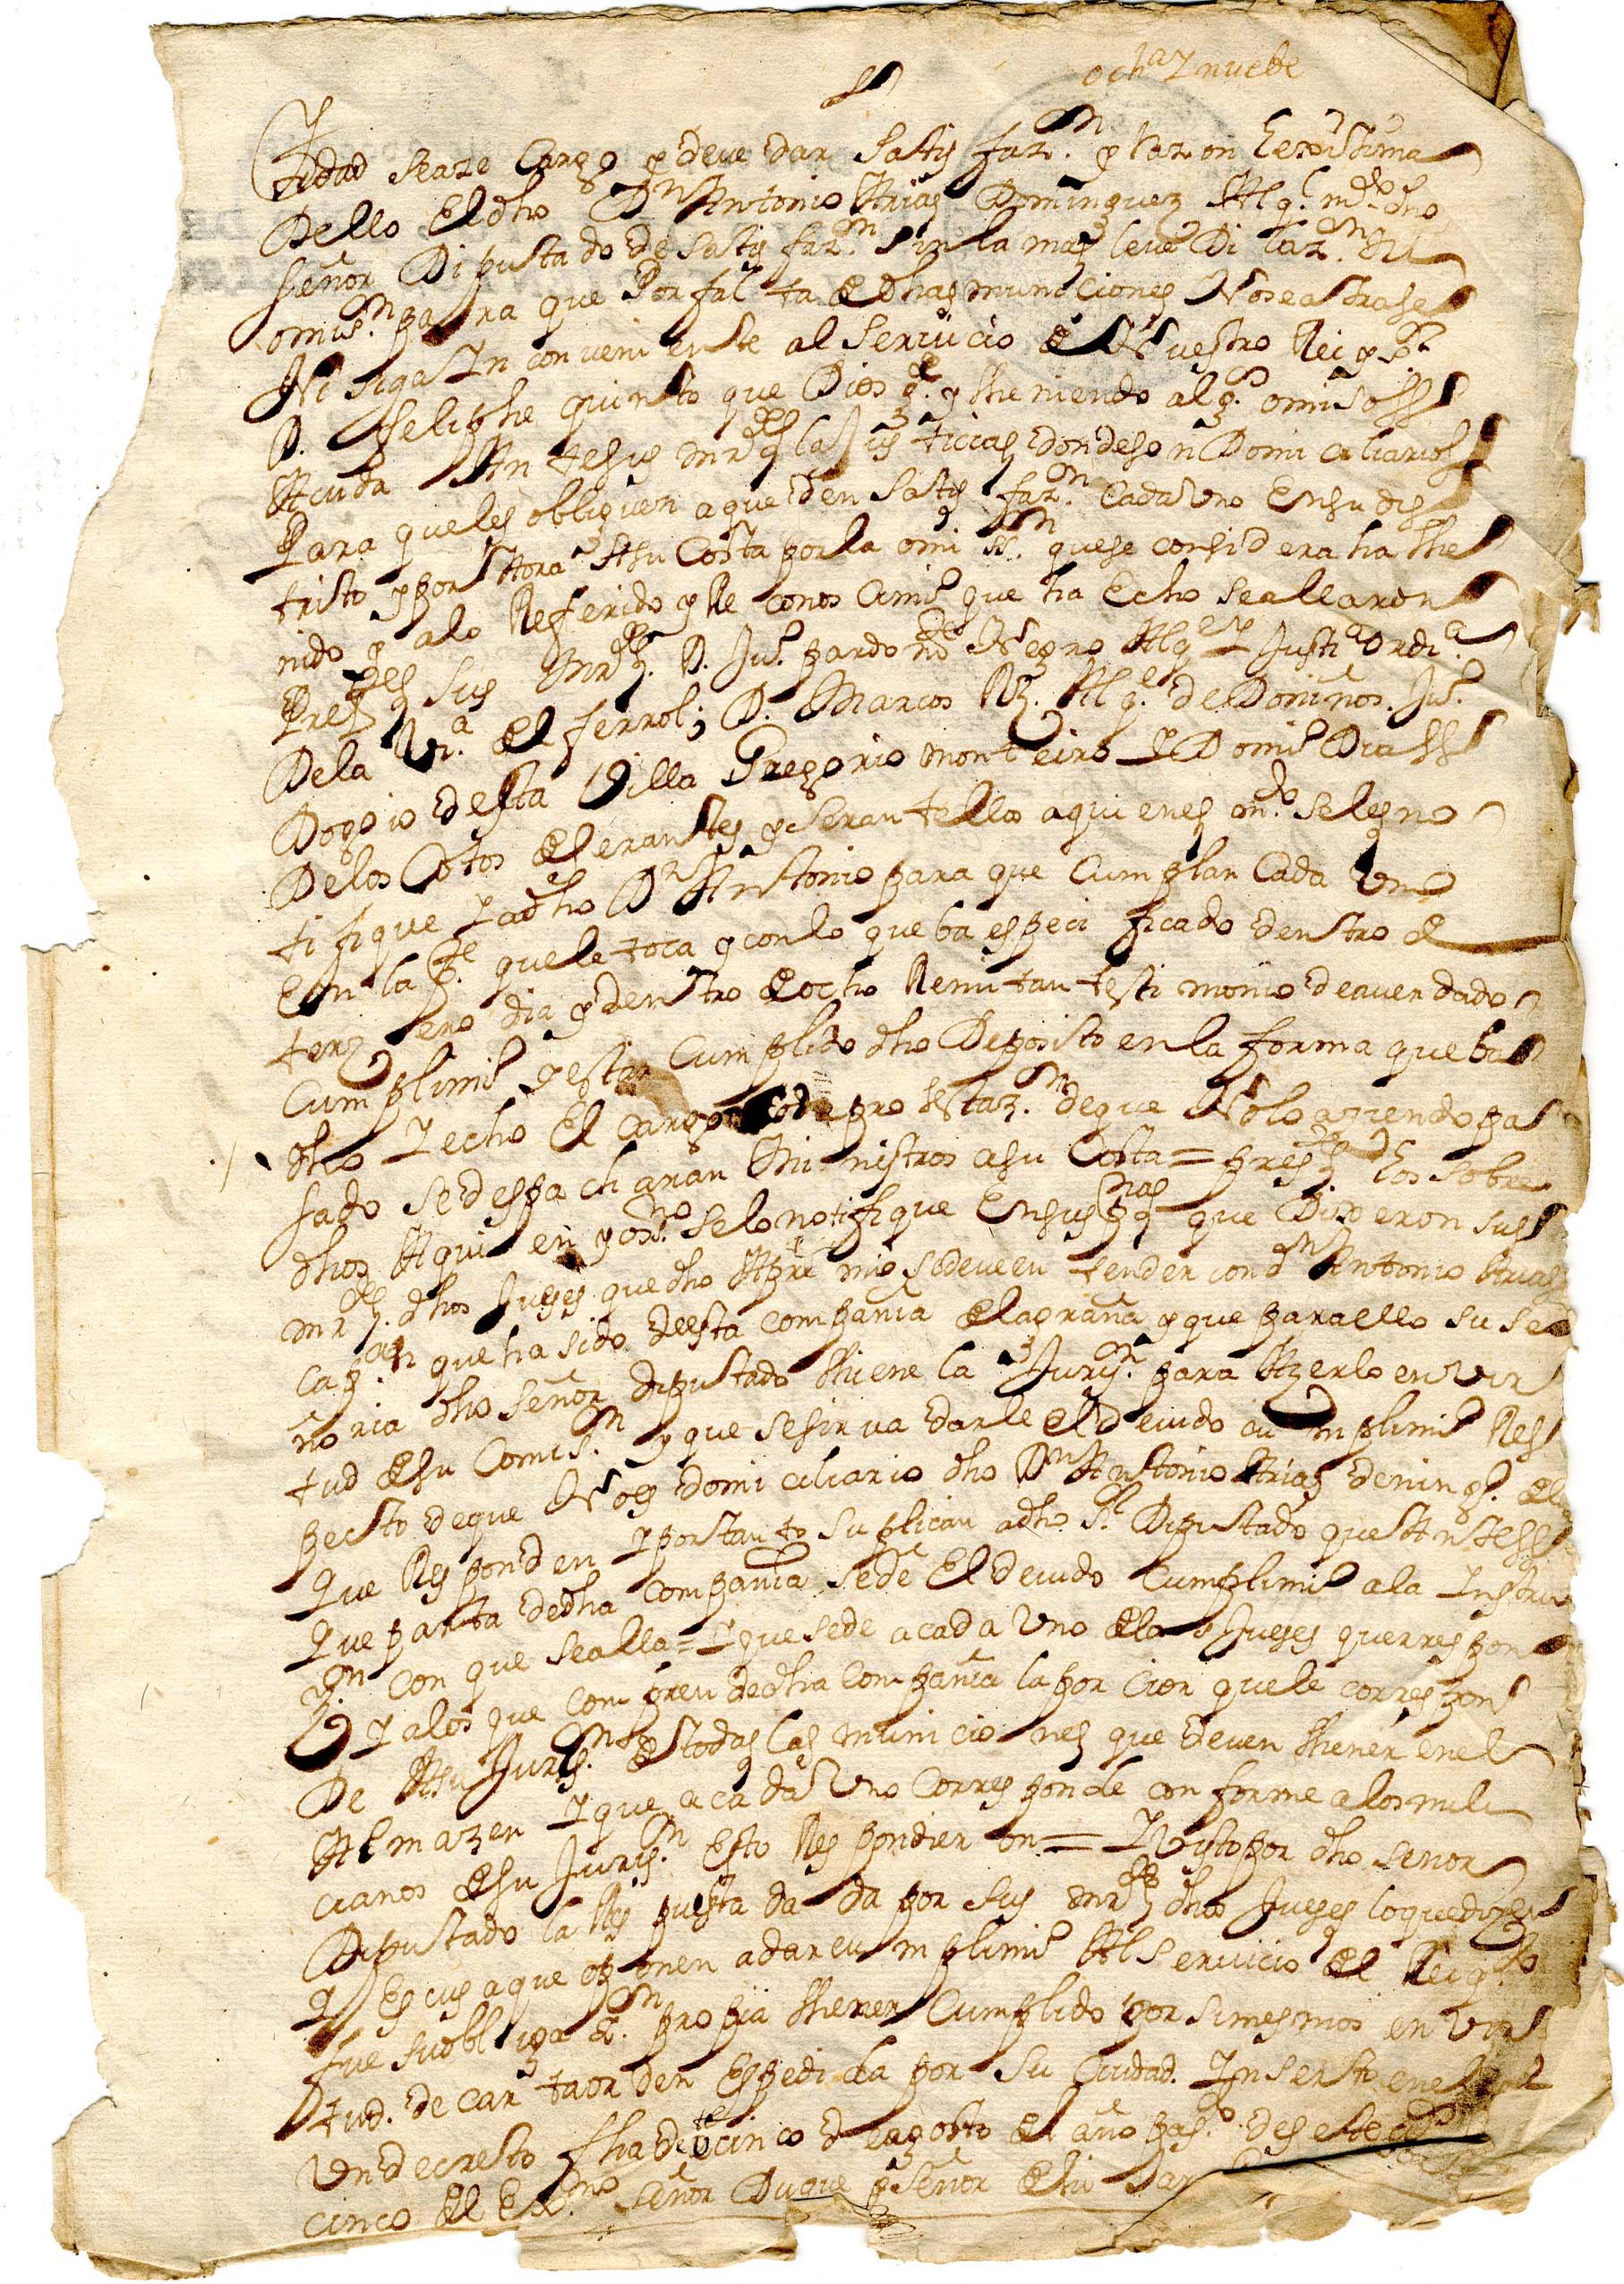 och.ª Y nuebe
tidad seaze Cargo y deue dar Satisfaz.n y Razon lexitima
Dello El dho Dn Antonio Arias Dominguez
señor Diputado de satisfaz.n sin la mas leue Dilaz.n ni
omis.n para que Por falta de dhas municiones No se atrase
Ni siga Inconveniente al Seruicio de Nuestro Rei y s.r
D. Feliphe quinto que Dios g.e y theniendo alg.o omiso
Acuda Antesus mrds las Justicias donde son Domiciliarios
Para queles obliguen a que den Satisfaz.n Cada Uno En su dis
tristo y por Aora A su Costa por la omiss.n que se considera ha the
nido y a lo Referido y Reconosimi.to que ha Echo se allaron
Pres.tes sus mrds. D. Ju.o pardo de Negro Justi.a ordi.a
Dela V.a del ferrol; D. Marcos Rz. de Doniños. Ju.o
Dopio desta Villa Gregorio monteiro Y Domi.o Dias
Delos Cotos de leranstes y Serantellos a quienes on.do se les no
tifique Y a dho Dn Antonio para que Cumplan Cada Uno
En la p.te que le toca y con lo que ba especificado dentro de
terzero dia y dentro de ocho Remitan testimonio de auer dado
Cumplimi.to y estar Cumplido dho Deposisto en la forma que ba
dho Y echo El cargo protestaz.n de que No lo aziendo pa
sado se despacharan Ministros a su Costa = pres.tes los sobre
dhos A quien yo ss.no se lo notifique En sus p.nas que Dijeron sus
mrds. dhos Jueses que dho Apremio se deue entender con Dn Antonio Arias
Cap.an que ha sido de esta compania de la graña y que para ello su se
ñoria dho señor diputado thiene la Juris.n para Azerlo en vir
tud de su Comis.n y que se sirua darle el deuido cumplimi.to Res
pecto de que No es domiciliario dho Dn Antonio Arias de ning.o de
Que Responden Y por tanto suplican a dho s.r Diputado que Antes
Que parta de dha compania se de El deuido Cumplimi.to a la Instru
z.n con que se alla = Y que se de a cada Uno de los Jueses que rrespon
Y a los que comprende dha Compania la porcion que le correspon
De A su Juris.n de todas las municiones que deuen thener en el
Almazen Y que a cada Uno Corresponde conforme a los mili
cianos de su Juris.n Esto Respondieron = Y Visto por dho señor
Diputado la Respuesta dada por sus mrds dhos Jueses lo que dizen
Y Escusa que oponen a dar cumplimi.to Al Seruicio del Rei
fue su obligaz.n propia thener Cumplido por si mesmos en vir
tud. de carta orden Espedida por su Ciudad. Inserto en el
Un decresto fha de cinco de agosto del año pas.do de
cinco del Ex.mo señor Duque y señor de hijar